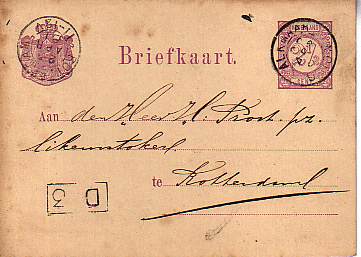 Briefkaart.
Aan den Heer H. Prost. pz.
likeurstokerij
te Rotterdam
D 3